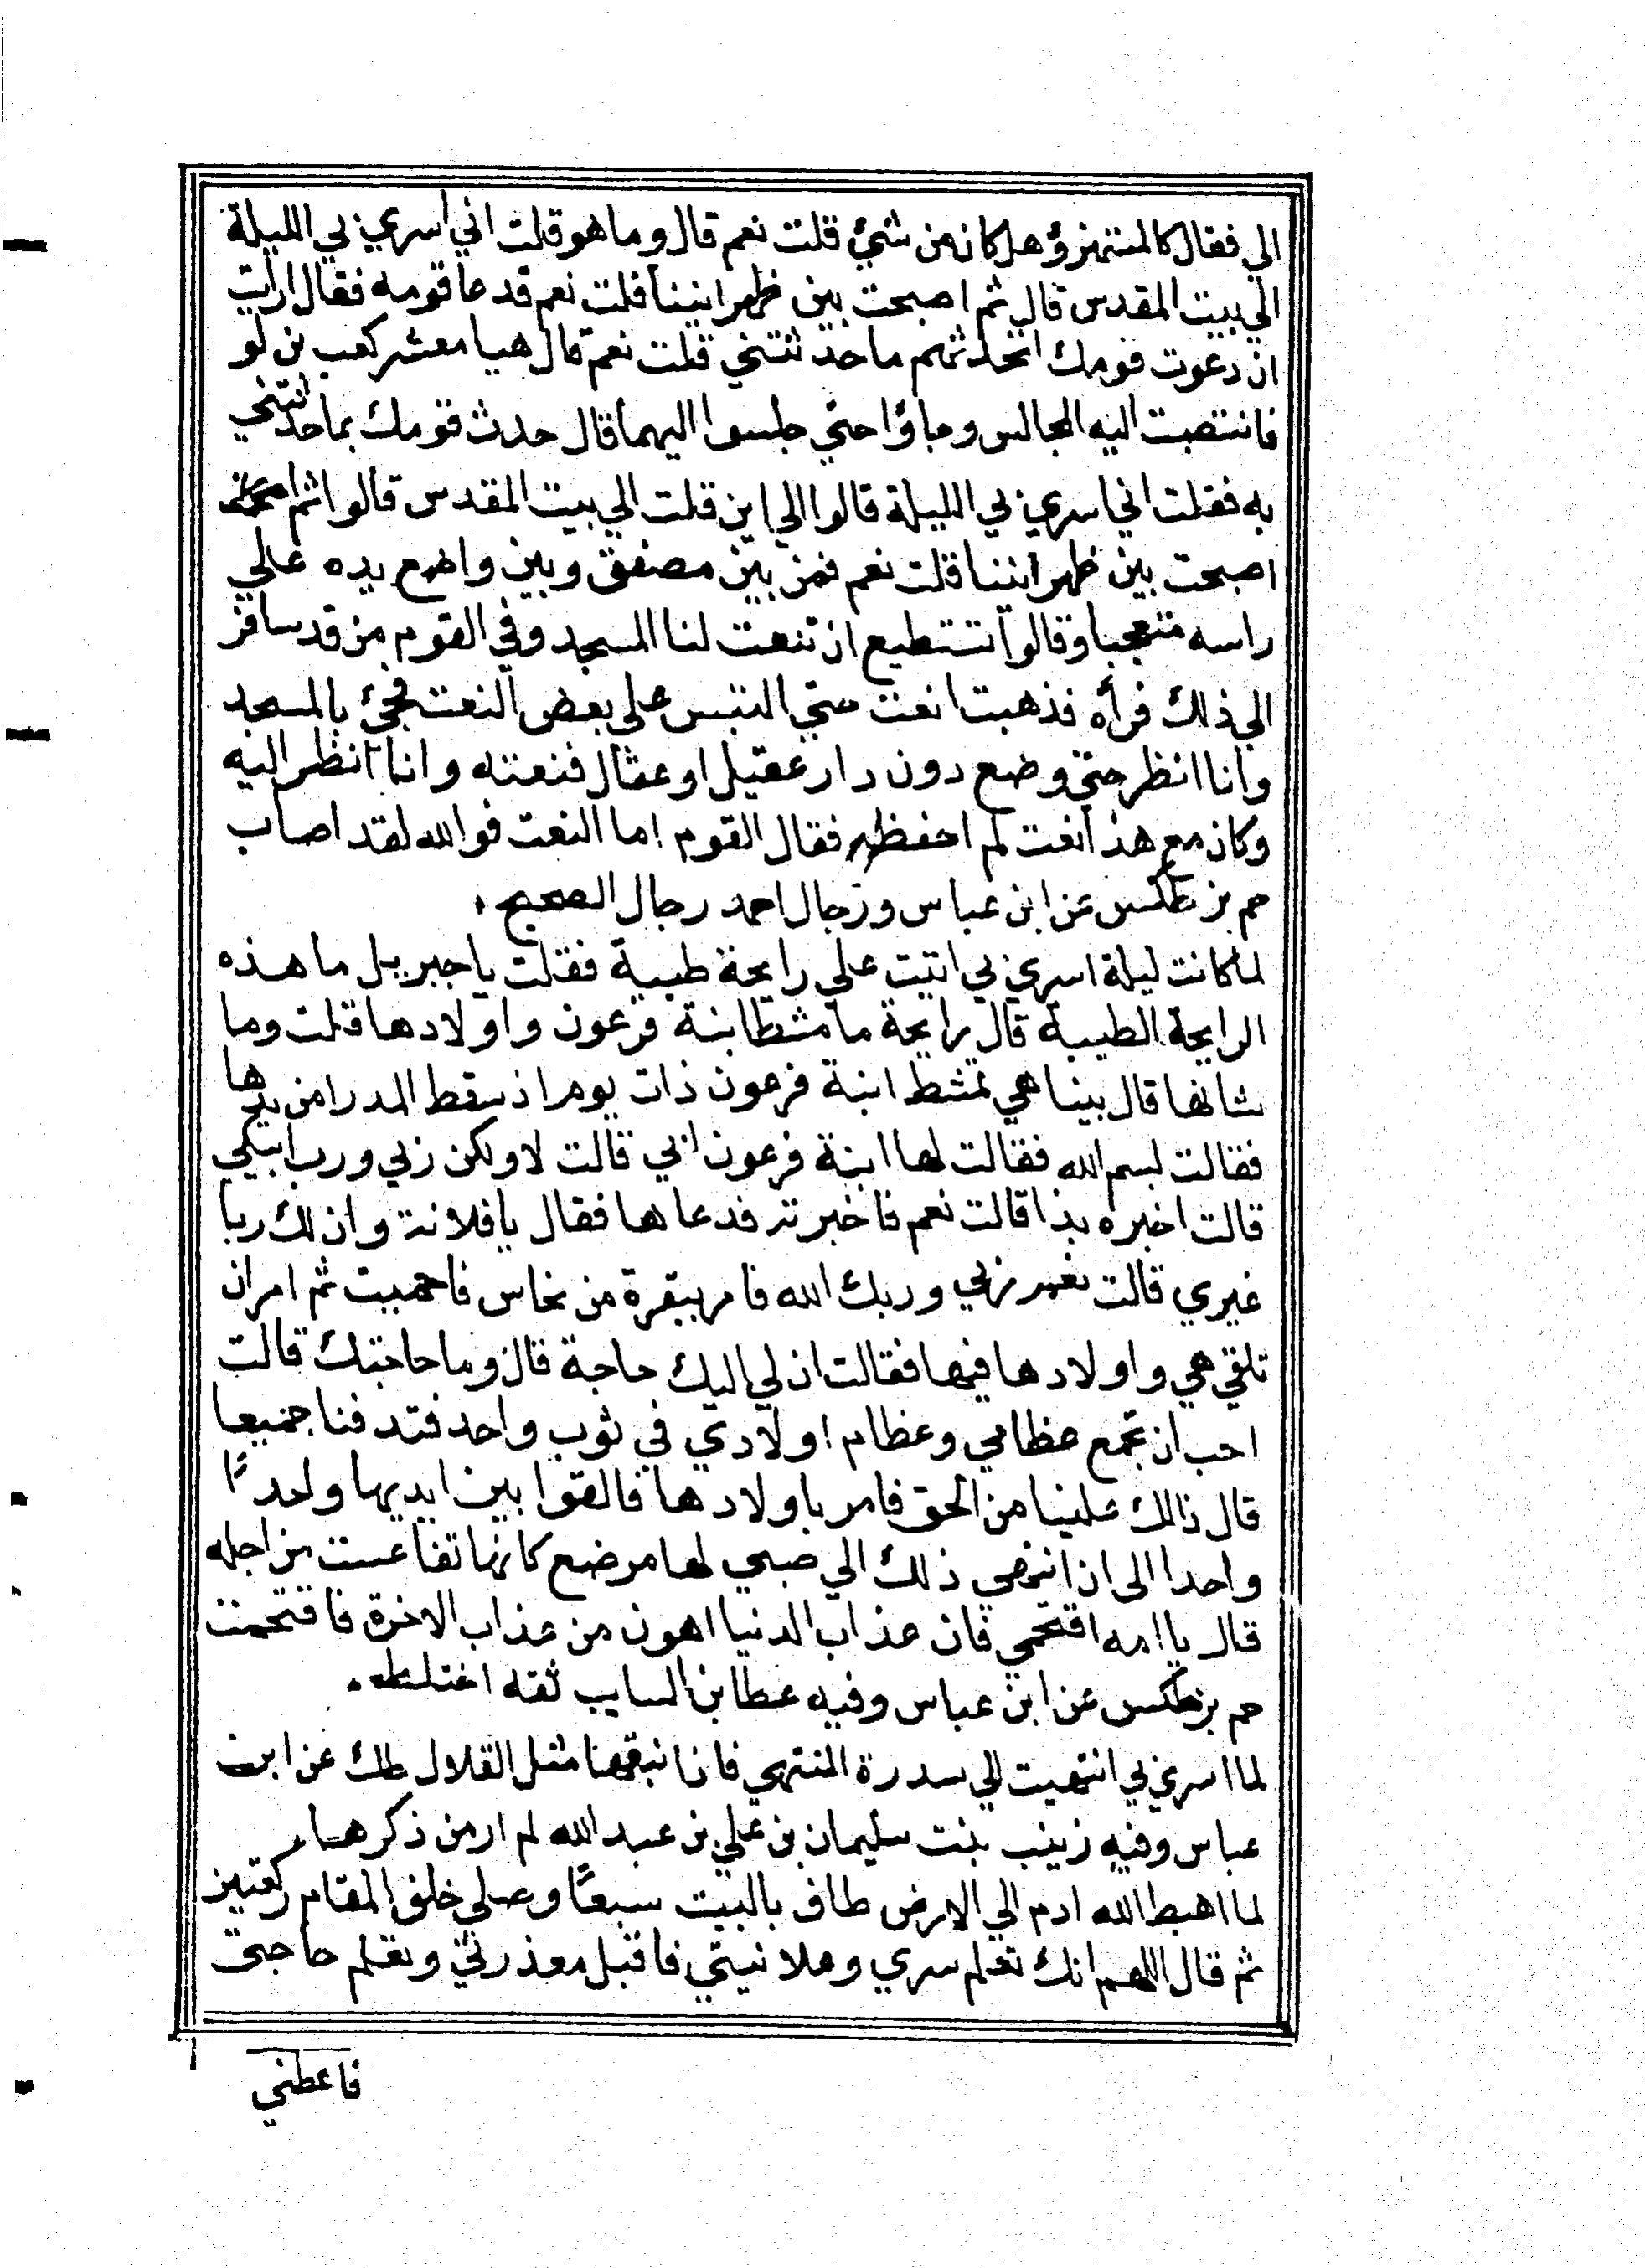 الي فقال كالمستهزؤ هل كان من شئ قلت نعم قال وما هو قلت اني اسري بي الليلة
الي بيت المقدس قال ثم اصبحت بين ظهرانينا قلت نعم قد عا قومه فقال ارايت
ان دعوت قومك اتحدثهم ما حدثتني قلت نعم قال هيا معشر كعب بن لو
فانتصبت اليه المجالس وجاؤا حتي جلسوا اليهما قال حدث قومك بما حدثتني
به فقلت اني اسري بي الليلة قالوا الي اين قلت الي بيت المقدس قالوا ثم
اصبحت بين ظهراننا قلت نعم فمن بين مصفق وبين واضع يده علي
راسه متعجبا وقالوا تستطيع ان تنعت لنا المسجد وفي القوم من قد سافر
الي ذلك فرآه فذهبت انعت حتي التبس علي بعض النعت فجئ بالمسجد
وانا انظر حتي وضع دون دار عقيل او عقال فنعته وانا انظر اليه
وكان مع هذا نعت لم احفظه فقال القوم اما النعت فوالله لقد اصاب
حم بز طكس عن ابن عباس ورجال احمد رجال الصحيح
لما كانت ليلة اسري بي اتيت علي رايحة طيبة فقلت يا جبريل ما هذه
الرايحة الطيبة قال رايحة ماشطا بنة فرعون واولادها قلت وما
شانها قال بينا هي تمشط ابنة فرعون ذات يوم اذ سقط المدرا من يدها
فقالت بسم الله فقالت لها ابنة فرعون ابي قالت لا ولكن ربي ورب ابيكي
قالت اخبره بذا قالت نعم فاخبرته فدعاها فقال يا فلانة وان لك ربا
غيري قالت نعم ربي وربك الله فامر ببقرة من نحاس فاحميت ثم امر ان
تلقي هي واولادها فيها فقالت ان لي اليك حاجة قال وما حاجتك قالت
احب ان تجمع عظامي وعظام اولادي في ثوب واحد فتدفنا جميعا
قال ذالك علينا من الحق فامر باولادها فالقوا بين ايديها واحدًا
واحدا الى ان انتهي ذلك الي صبي لها مرضع كانها تقاعست من اجله
قال يا امه اقتحمي فان عذاب الدنيا اهون من عذاب الاخرة فاقتحمت
حم بز طكس عن ابن عباس وفيه عطا بن السايب ثقه اختلط
لما اسري بي انتهيت الي سدرة المنتهي فاذا نبقها مثل القلال طك عن ابن
عباس وفيه زينب بنت سليمان بن علي بن عبد الله لم ار من ذكرها
لما اهبط الله ادم الي الارض طاف بالبيت سبعًا وصلي خلف المقام ركعتين
ثم قال اللهم انك تعلم سري وعلانيتي فاقبل معذرتي وتعلم حاجتي
فاعطني